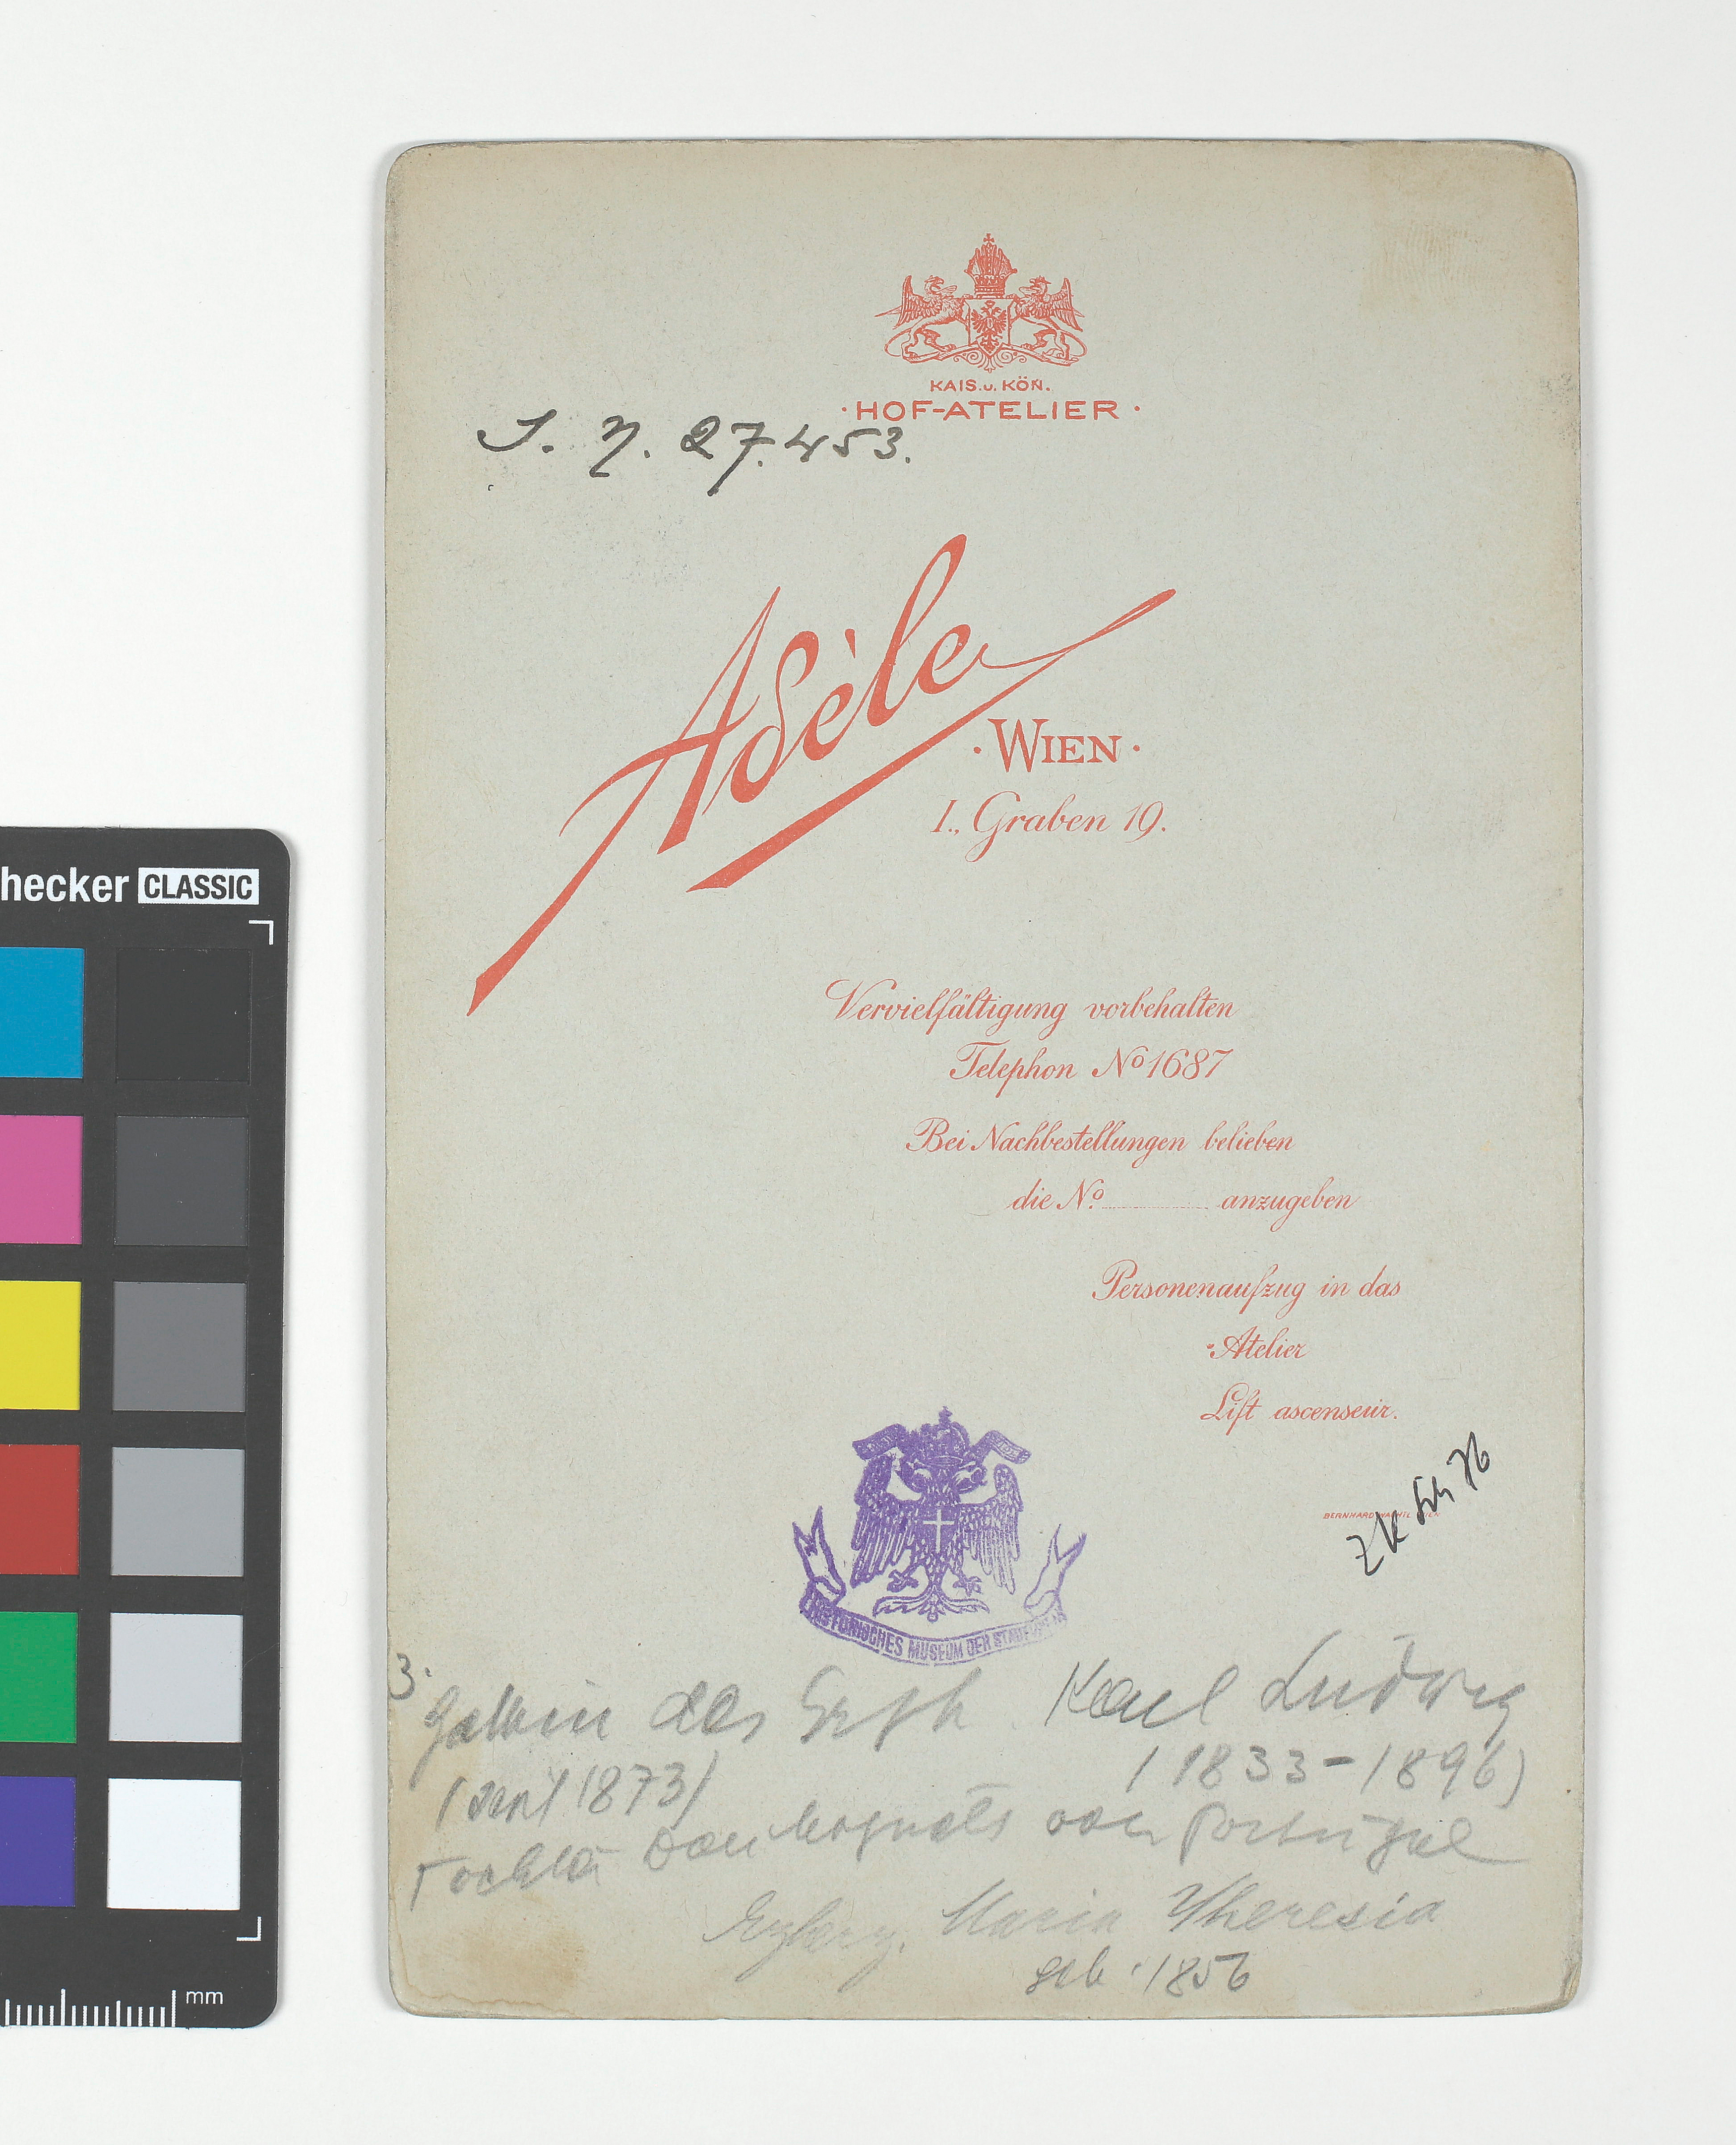 KAIS. u. KÖN.
· HOF-ATELIER ·
J. N. 27.453.
Adèle
· WIEN ·
I., Graben 19.
hecker CLASSIC
Vervielfältigung vorbehalten
Telephon No 1687
Bei Nachbestellungen belieben
die No. anzugeben
Personenaufzug in das
Atelier
Lift ascenseur.
BERNHARD WACHTL WIEN
HISTORISCHES MUSEUM DER STADT WIEN
3.
Gattin des Erzh. Karl Ludwig
(seit 1873) (1833-1896)
Tochter Dom Miguels von Portugal
Erzherz. Maria Theresia
geb. 1856
mm